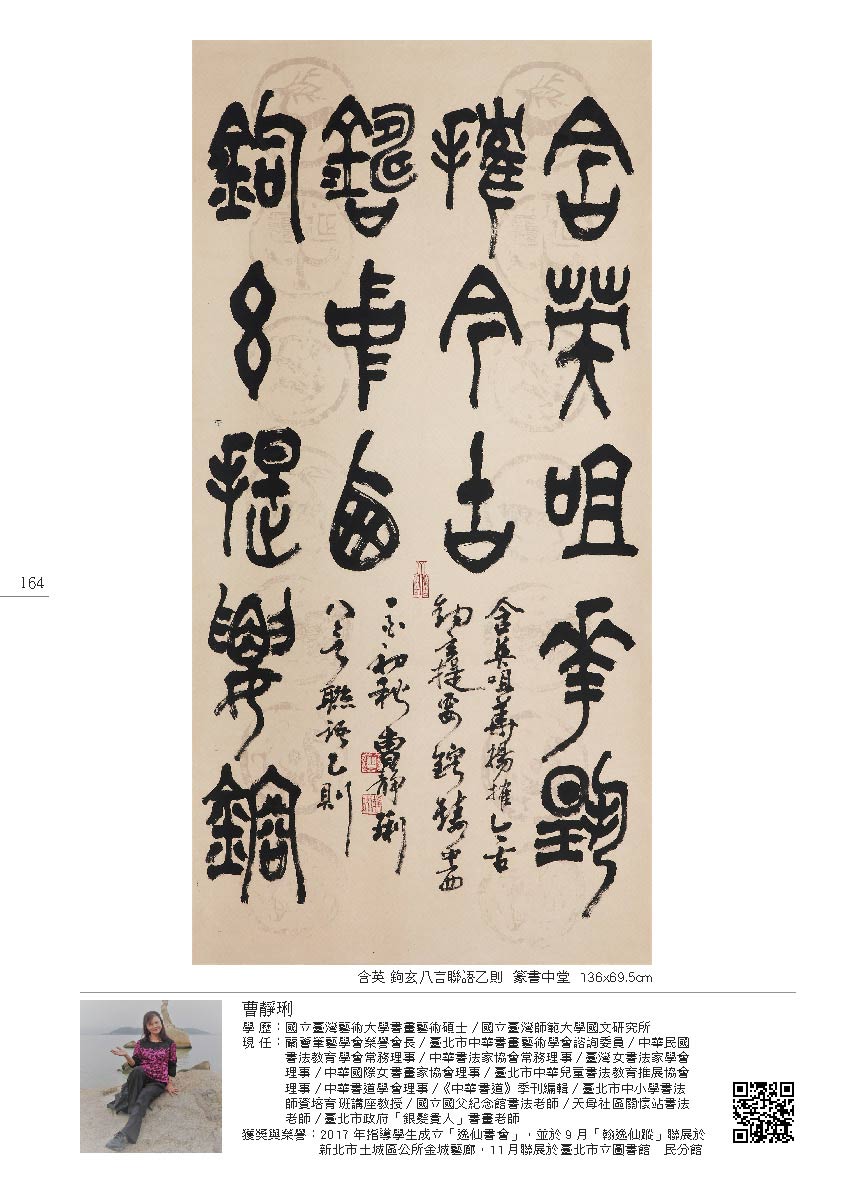 含英咀華揚
搉今古
鑄中西
鉤玄提要鎔
含英咀華揚搉今古
鉤玄提要鎔鑄中西
初秋 曹靜琍
八言聯語乙則
164
含英 鉤玄八言聯語乙則 篆書中堂 136x69.5cm
曹靜琍
學 歷：國立臺灣藝術大學書畫藝術碩士／國立臺灣師範大學國文研究所
現 任：蘭馨筆藝學會榮譽會長／臺北市中華書畫藝術學會諮詢委員／中華民國
書法教育學會常務理事／中華書法家協會常務理事／臺灣女書法家學會
理事／中華國際女書畫家協會理事／臺北市中華兒童書法教育推展協會
理事／中華書道學會理事／《中華書道》季刊編輯／臺北市中小學書法
師資培育班講座教授／國立國父紀念館書法老師／天母社區關懷站書法
老師／臺北市政府「銀髮貴人」書畫老師
獲獎與榮譽：2017 年指導學生成立「逸仙書會」，並於 9 月「翰逸仙蹤」聯展於
新北市土城區公所金城藝廊，11 月聯展於臺北市立圖書館　民分館